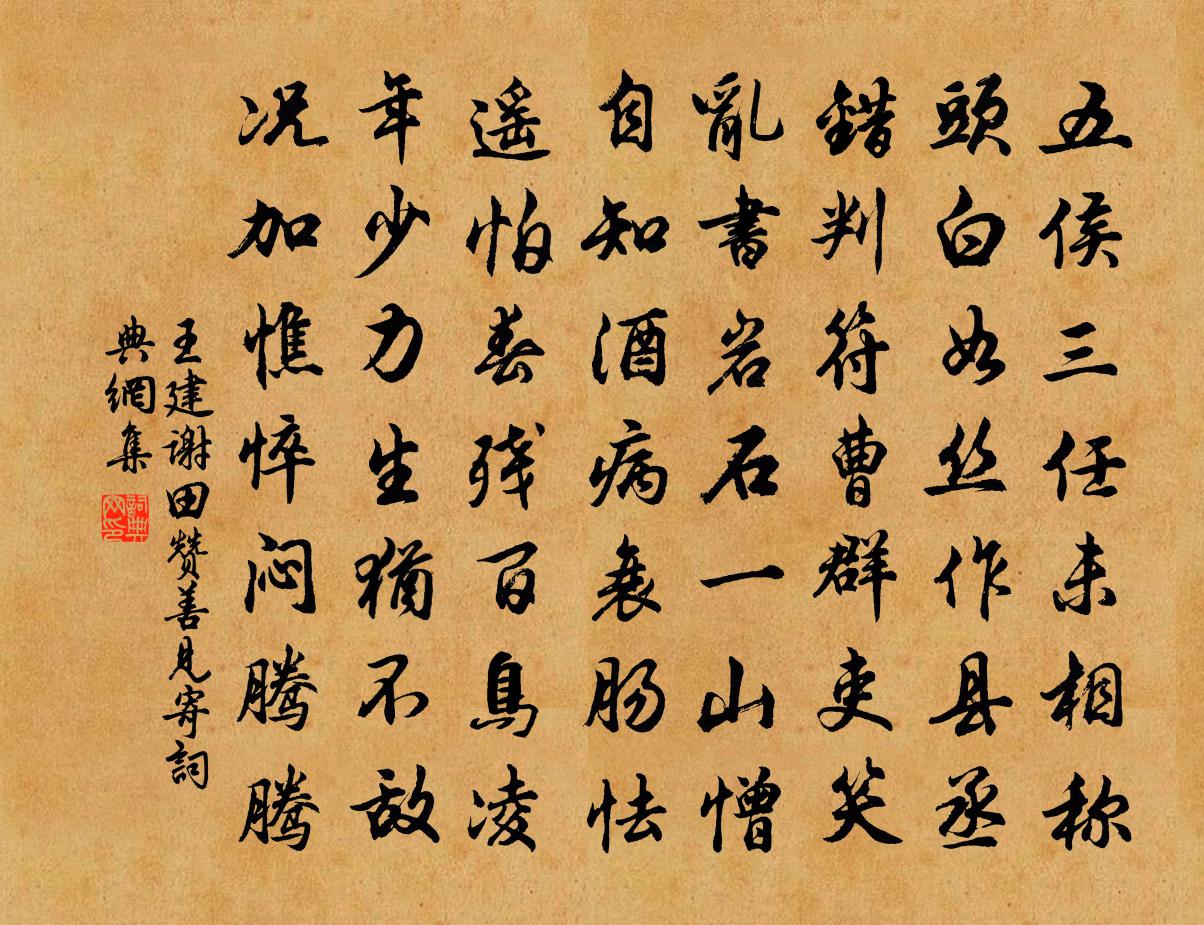 五侯三任未相称
頭白如丝作县丞
錯判符曹群吏笑
亂書岩石一山憎
自知酒病衰肠怯
遥怕春残百鳥凌
年少力生犹不敌
况加憔悴闷腾腾
王建谢田赞善見寄詞
典網集
詞典网印